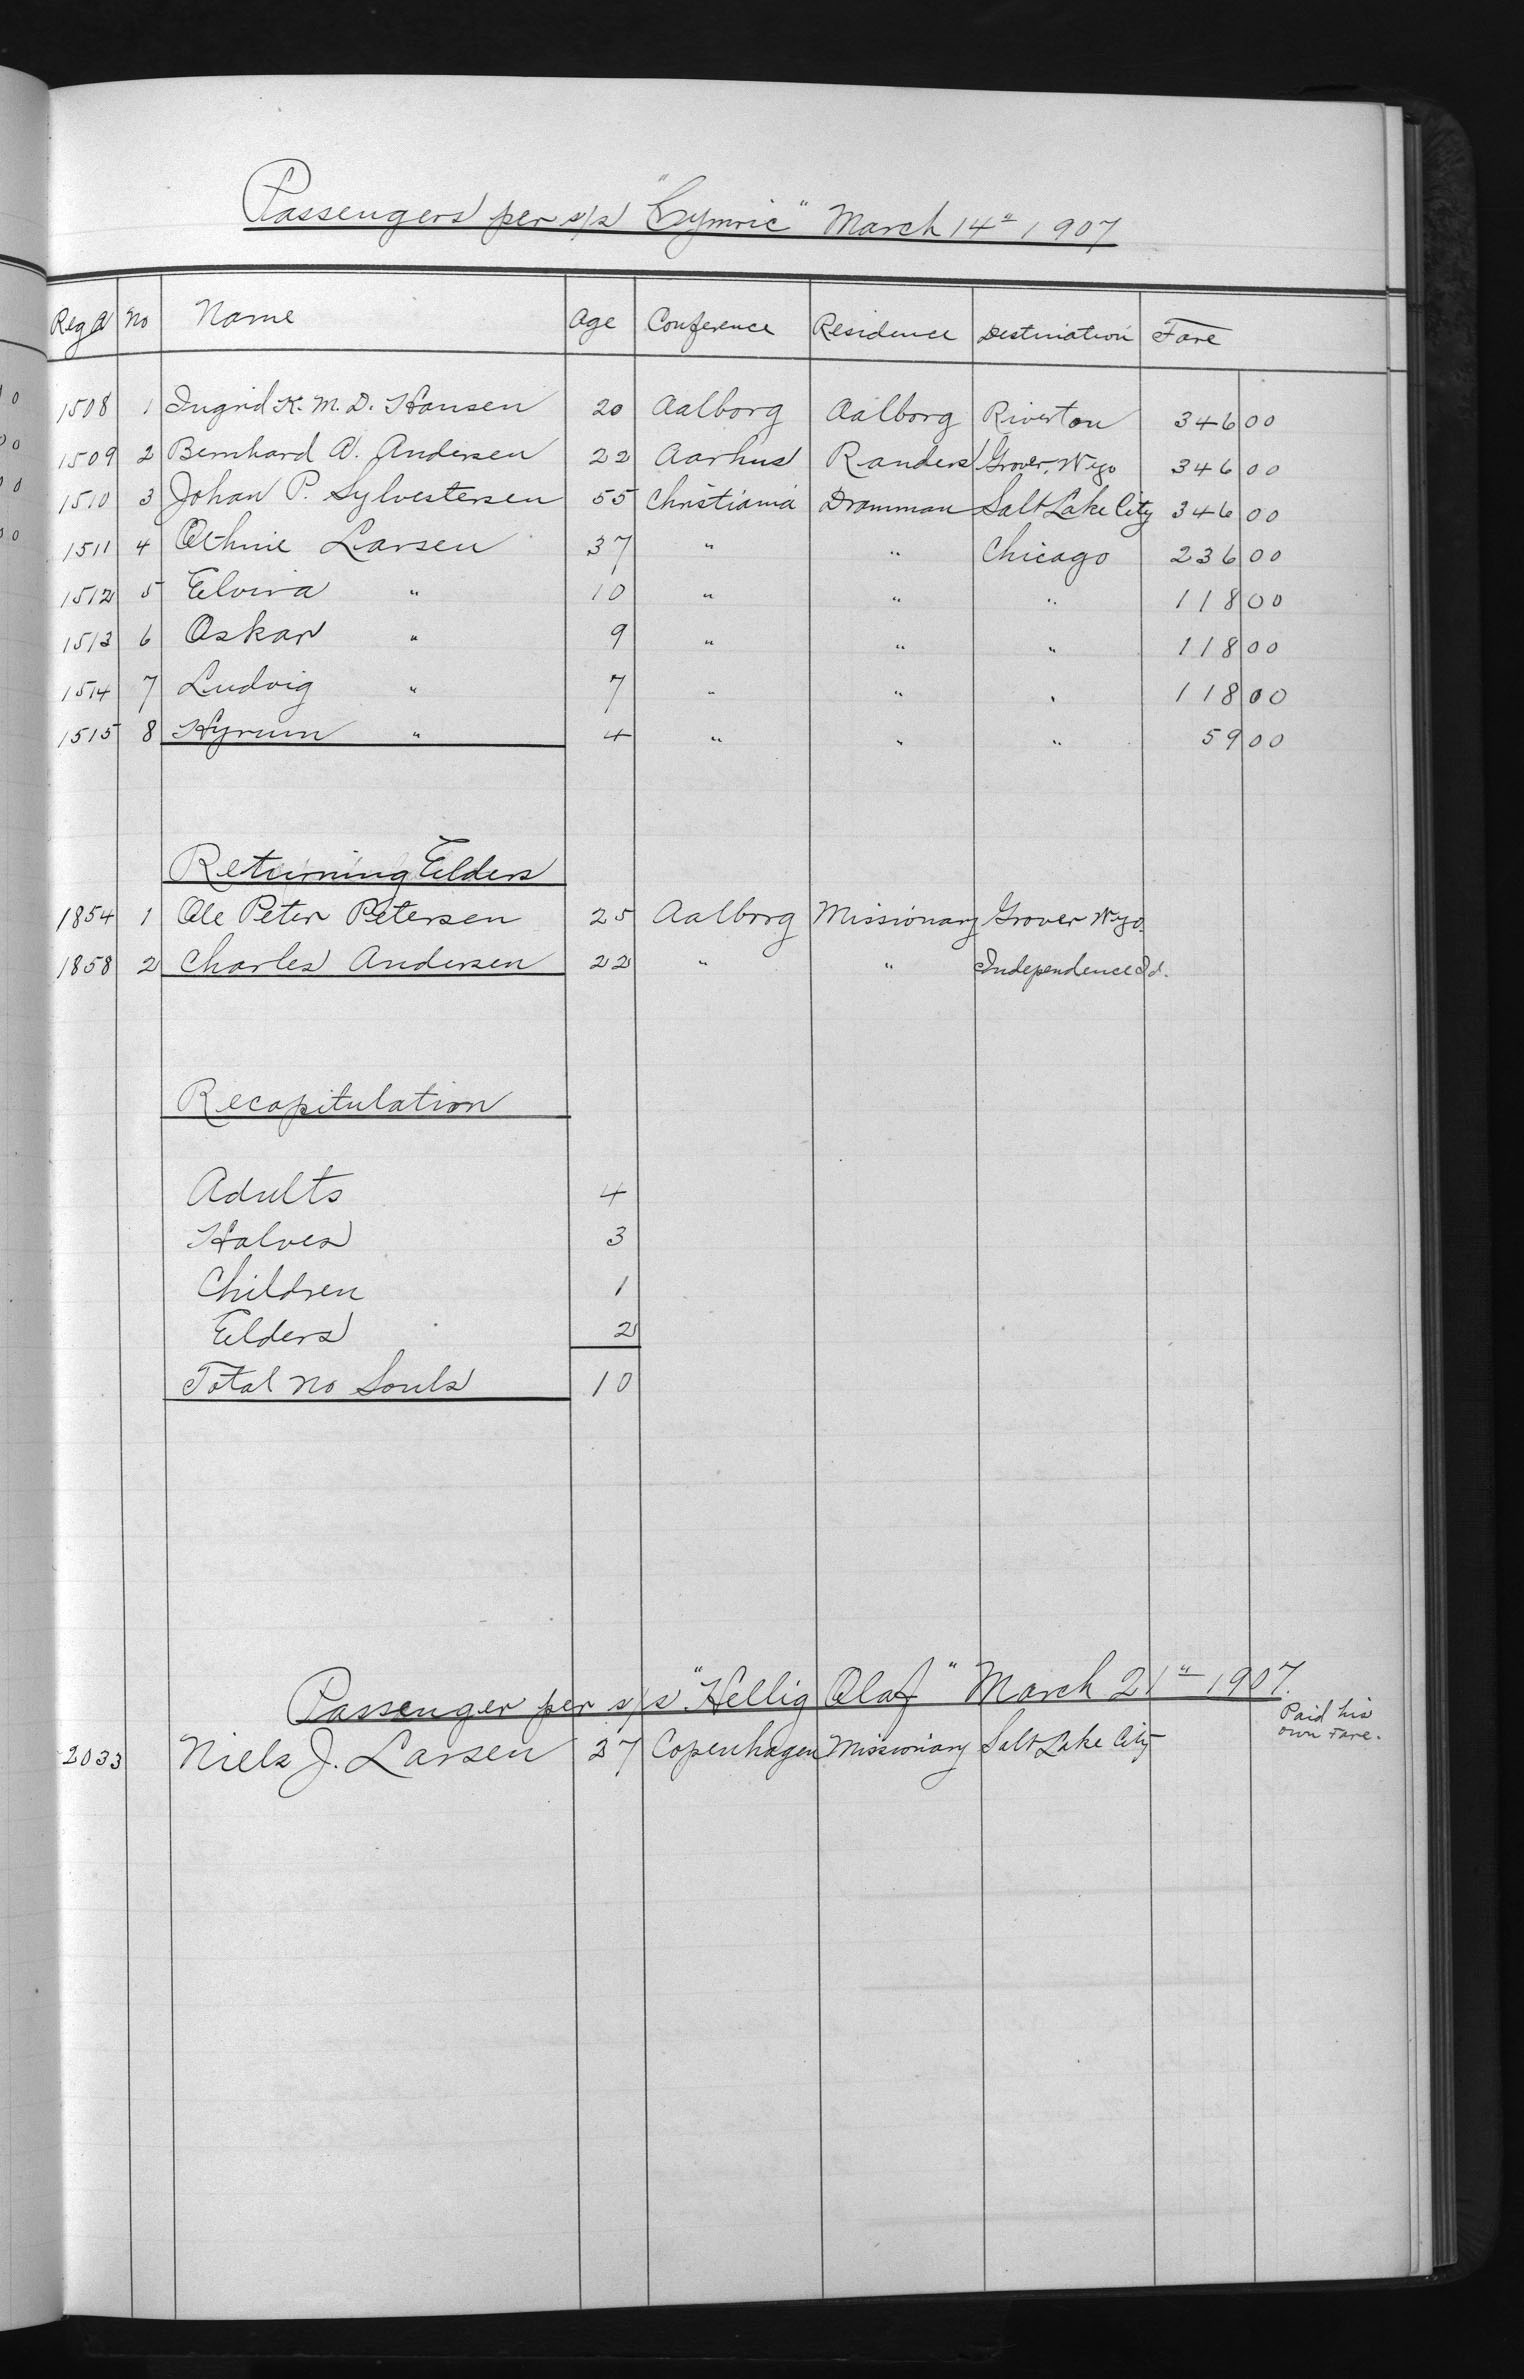 Passengers per s/s "Cymric" March 14" 1907
Reg A No Name Age Conference Residence Destination Fare
1508 1 Ingrid K. M. D. Hansen 20 Aalborg Aalborg Riverton 346 00
1509 2 Bernhard A. Andersen 22 Aarhus Randers Grover, Wyo 346 00
1510 3 Johan P. Sylvestersen 55 Christiania Dramman Salt Lake City 346 00
1511 4 Othnie Larsen 37 " " Chicago 236 00
1512 5 Elvira " 10 " " " 118 00
1513 6 Oskar " 9 " " " 118 00
1514 7 Ludvig " 7 " " " 118 00
1515 8 Hyrum " 4 " " " 59 00
Returning Elders
1854 1 Ole Peter Petersen 25 Aalborg Missionary Grover Wyo.
1858 2 Charles Andersen 22 " " Independence Id.
Recapitulation
Adults 4
Halves 3
Children 1
Elders 2
Total no Souls 10
Passenger per s/s "Hellig Olaf" March 21" 1907.
2033 Niels J. Larsen 37 Copenhagen Missionary Salt Lake City Paid his
own Fare.